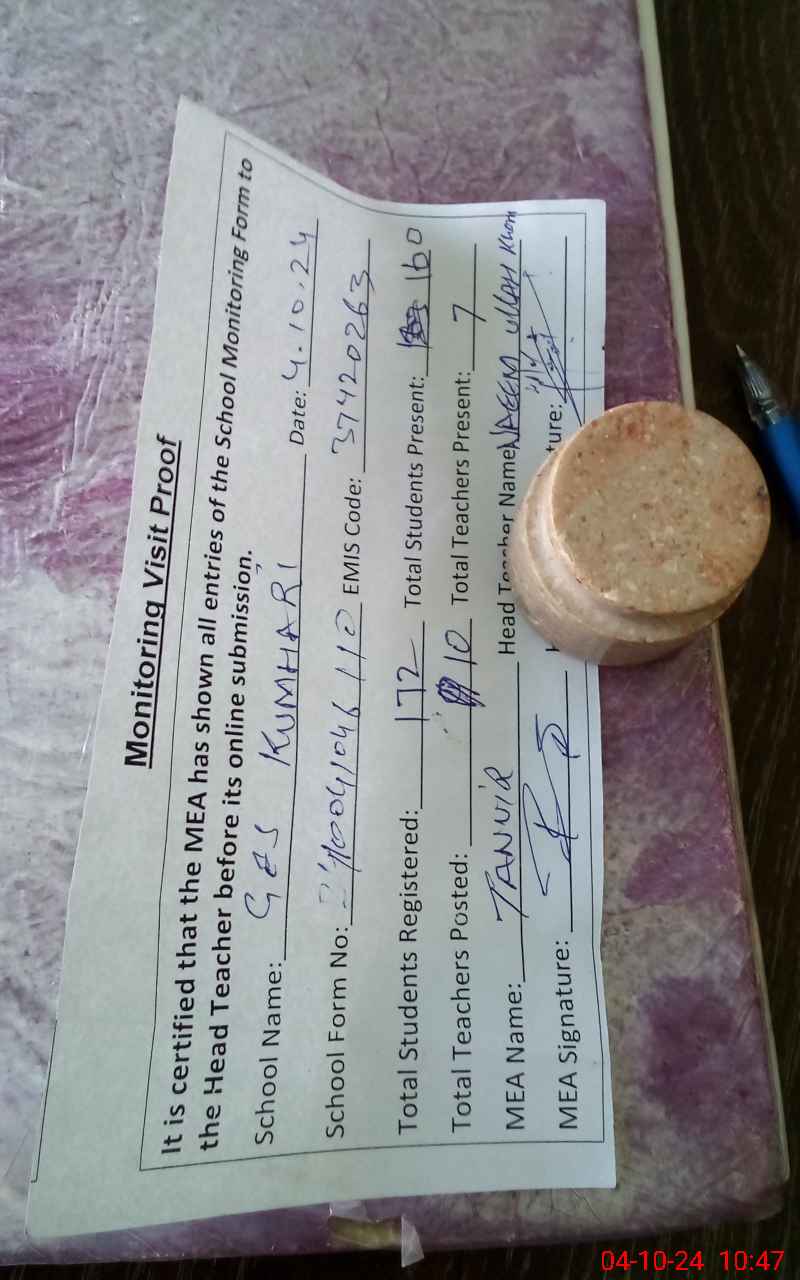 Monitoring Visit Proof
It is certified that the MEA has shown all entries of the School Monitoring Form to
the Head Teacher before its online submission.
School Name: GES KUMHARI Date: 4.10.24
School Form No: EMIS Code: 37420263
Total Students Registered: 172 Total Students Present: 160
Total Teachers Posted: 10 Total Teachers Present: 7
MEA Name: TANVIR Head Teacher Name NAEEM ullAH Khan
MEA Signature: ture:
04-10-24 10:47